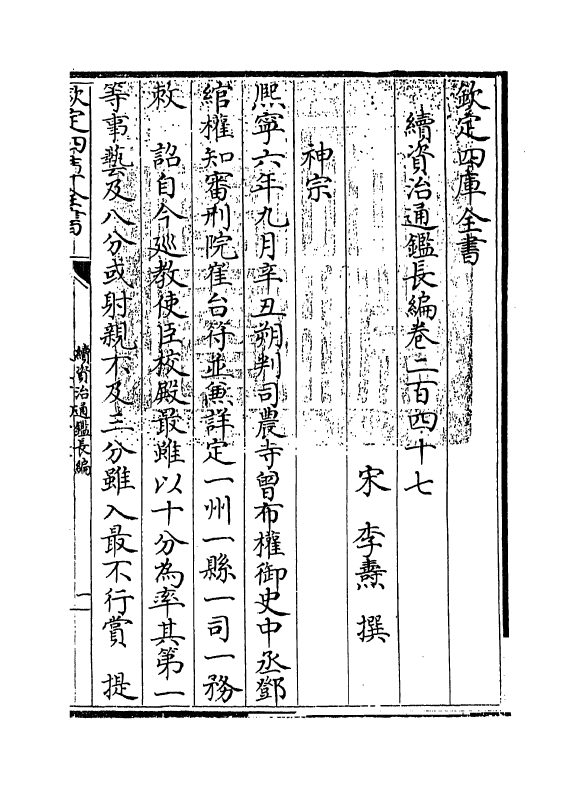 欽定四庫全書
續資治通鑑長編卷二百四十七
宋 李燾 撰
神宗
熙寧六年九月辛丑朔判司農寺曾布權御史中丞鄧
綰權知審刑院崔台符並兼詳定一州一縣一司一務
敕 詔自今廵教使臣校殿最雖以十分為率其第一
等事藝及八分或射親不及三分雖入最不行賞 提
欽定四庫全書
續資治通鑑長編
一